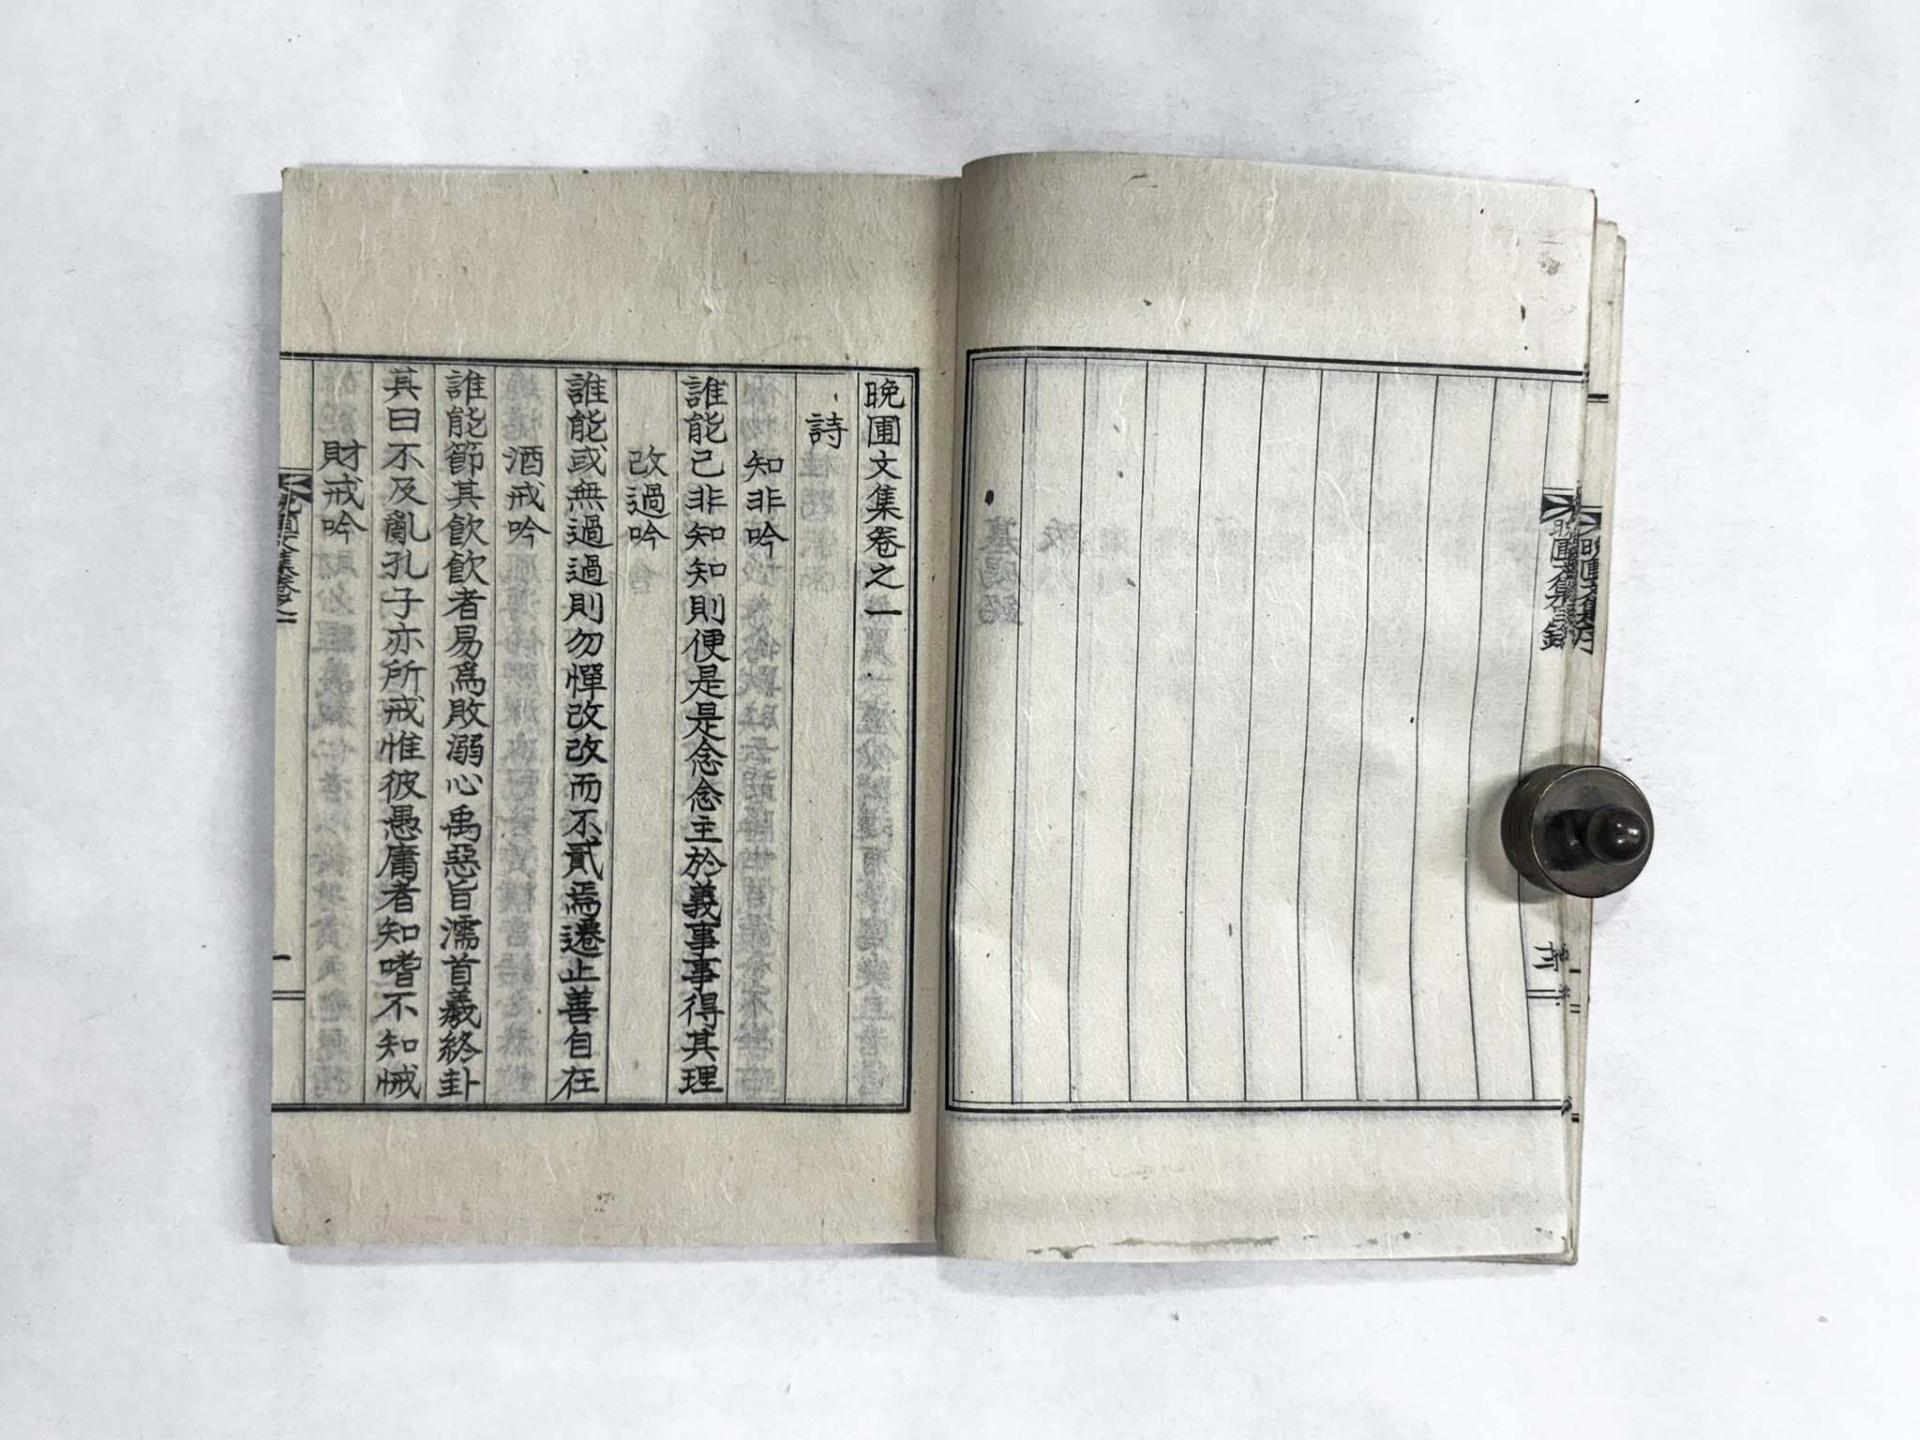 晩圃文集卷之一
詩
知非吟
誰能己非知知則便是是念念主於義事事得其理
改過吟
誰能或無過過則勿憚改改而不貳焉遷止善自在
酒戒吟
誰能節其飮飮者易爲敗溺心禹惡旨濡首羲終卦
其曰不及亂孔子亦所戒惟彼愚庸者知嗜不知悈
財戒吟